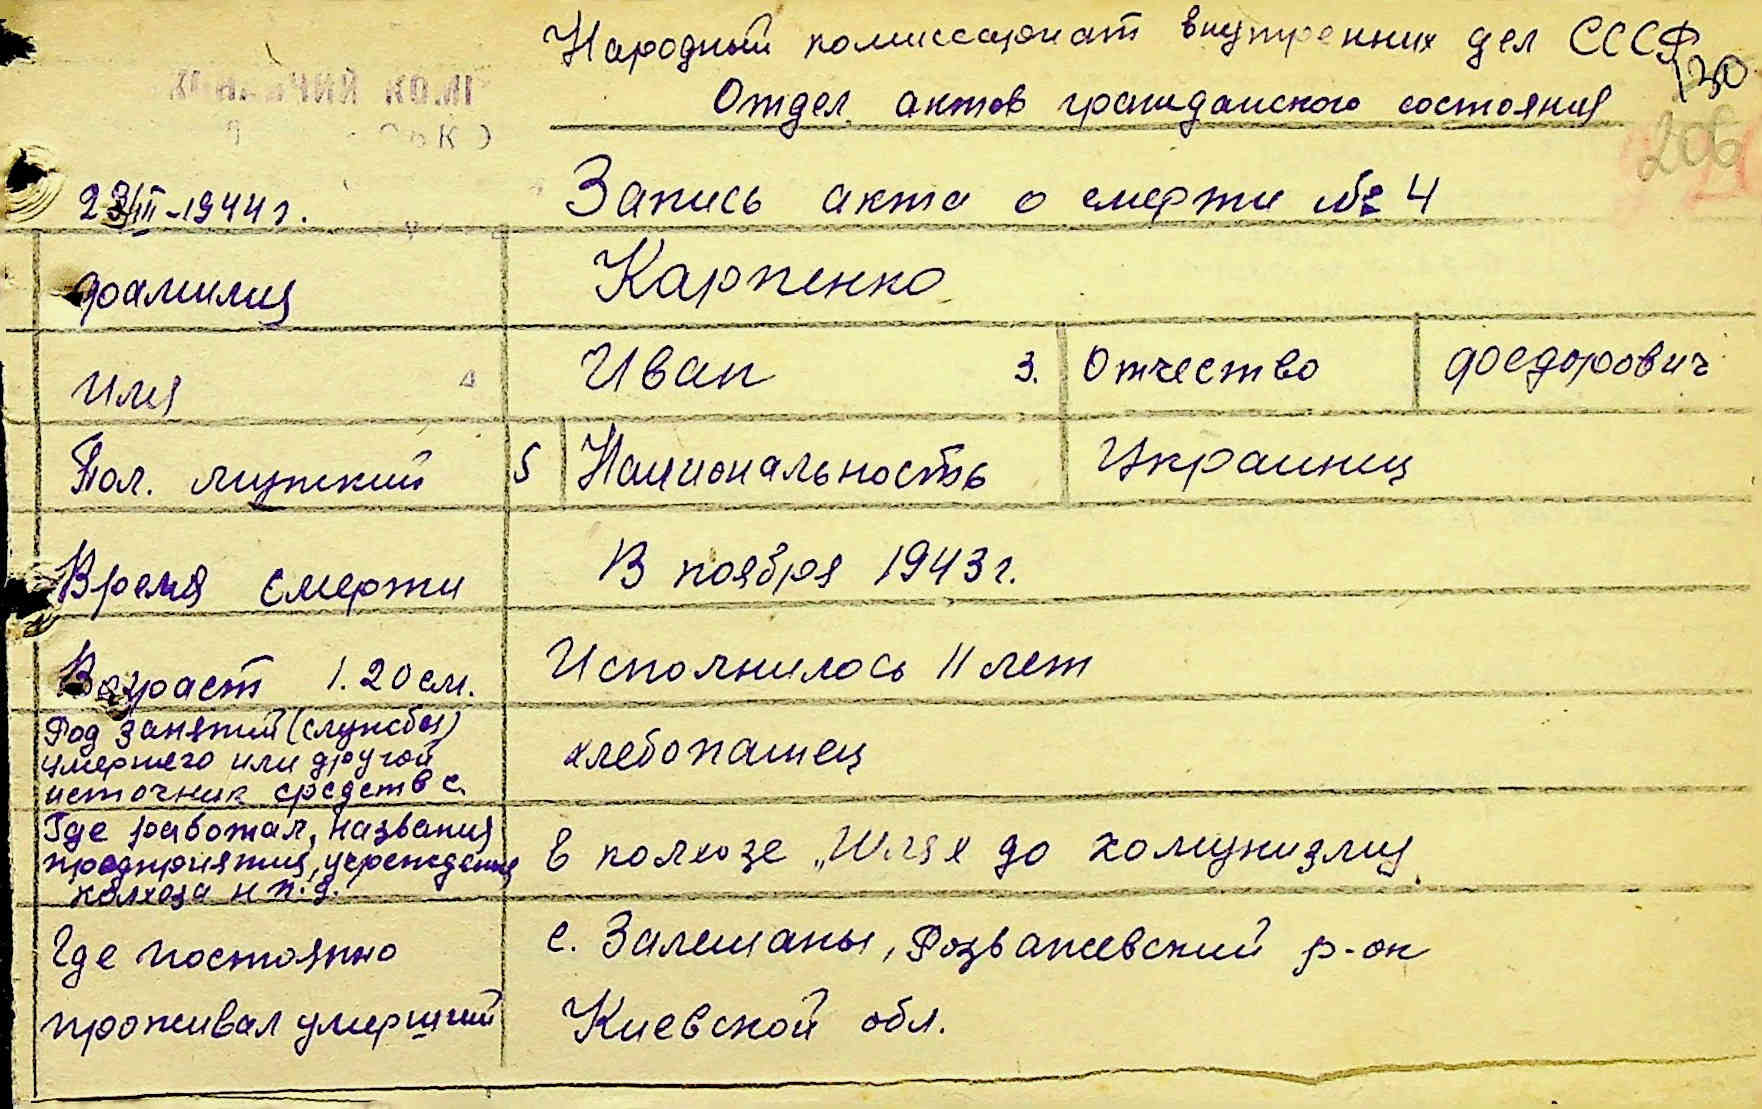 Народный комиссариат внутренних дел СССР
130
Отдел актов гражданского состояния
206
23/III-1944г. Запись акта о смерти № 4
Фамилия Карпенко
Имя Иван 3. Отчество Федорович
Пол. мужский 5 Национальность Украинец
Время смерти В ноября 1943г.
Возраст 1.20см. Исполнилось 11 лет
Род занятий (службы)
умершего или другой хлебопашец
источник средств с.
Где работал, названия
предприятия, учреждения в колхозе „Шлях до комунизму
колхоза и т.д.
Где постоянно с. Залешаны, Розважевский р-он
проживал умерший Киевской обл.